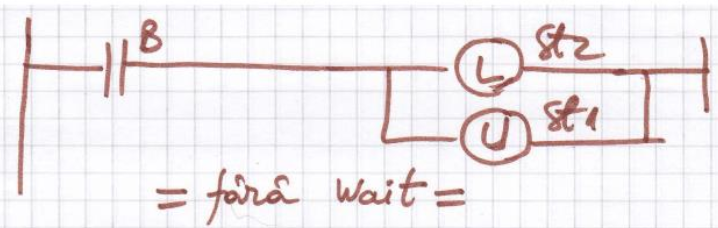 B
L St2
U St1
= fără Wait =